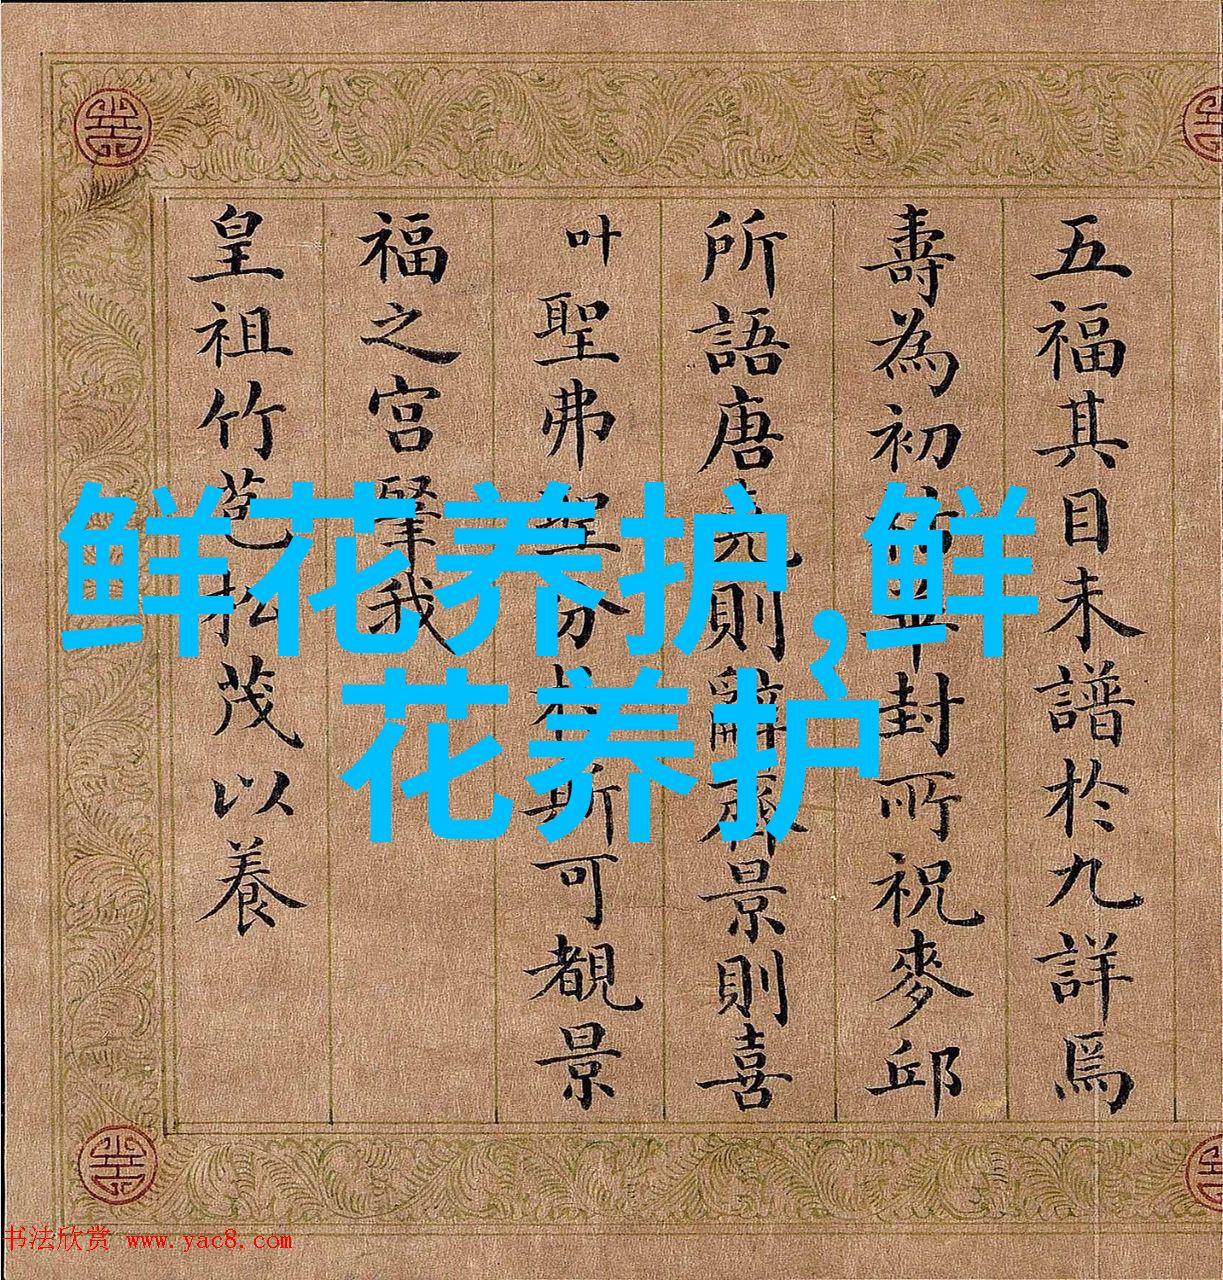 五福其目未譜於九詳焉
壽為初華封所祝麥邱
所語唐堯則辭齊景則喜
叶聖弗聖分於斯可覩景
福之宮肇我
皇祖竹苞松茂以養
鲜花养护,鲜
花养护
书法欣赏 www.yac8.com